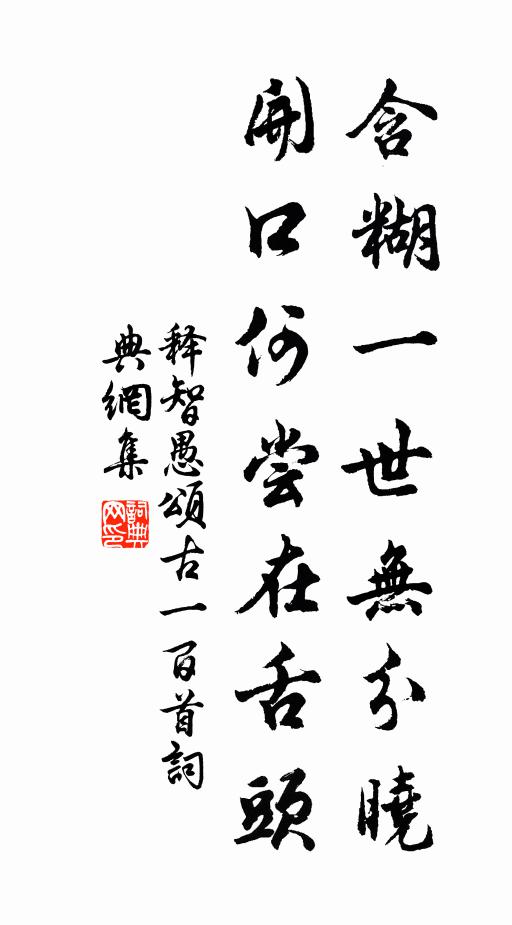 含糊一世無分曉
開口何尝在舌頭
释智愚頌古一百首詞
典網集
詞典
网印